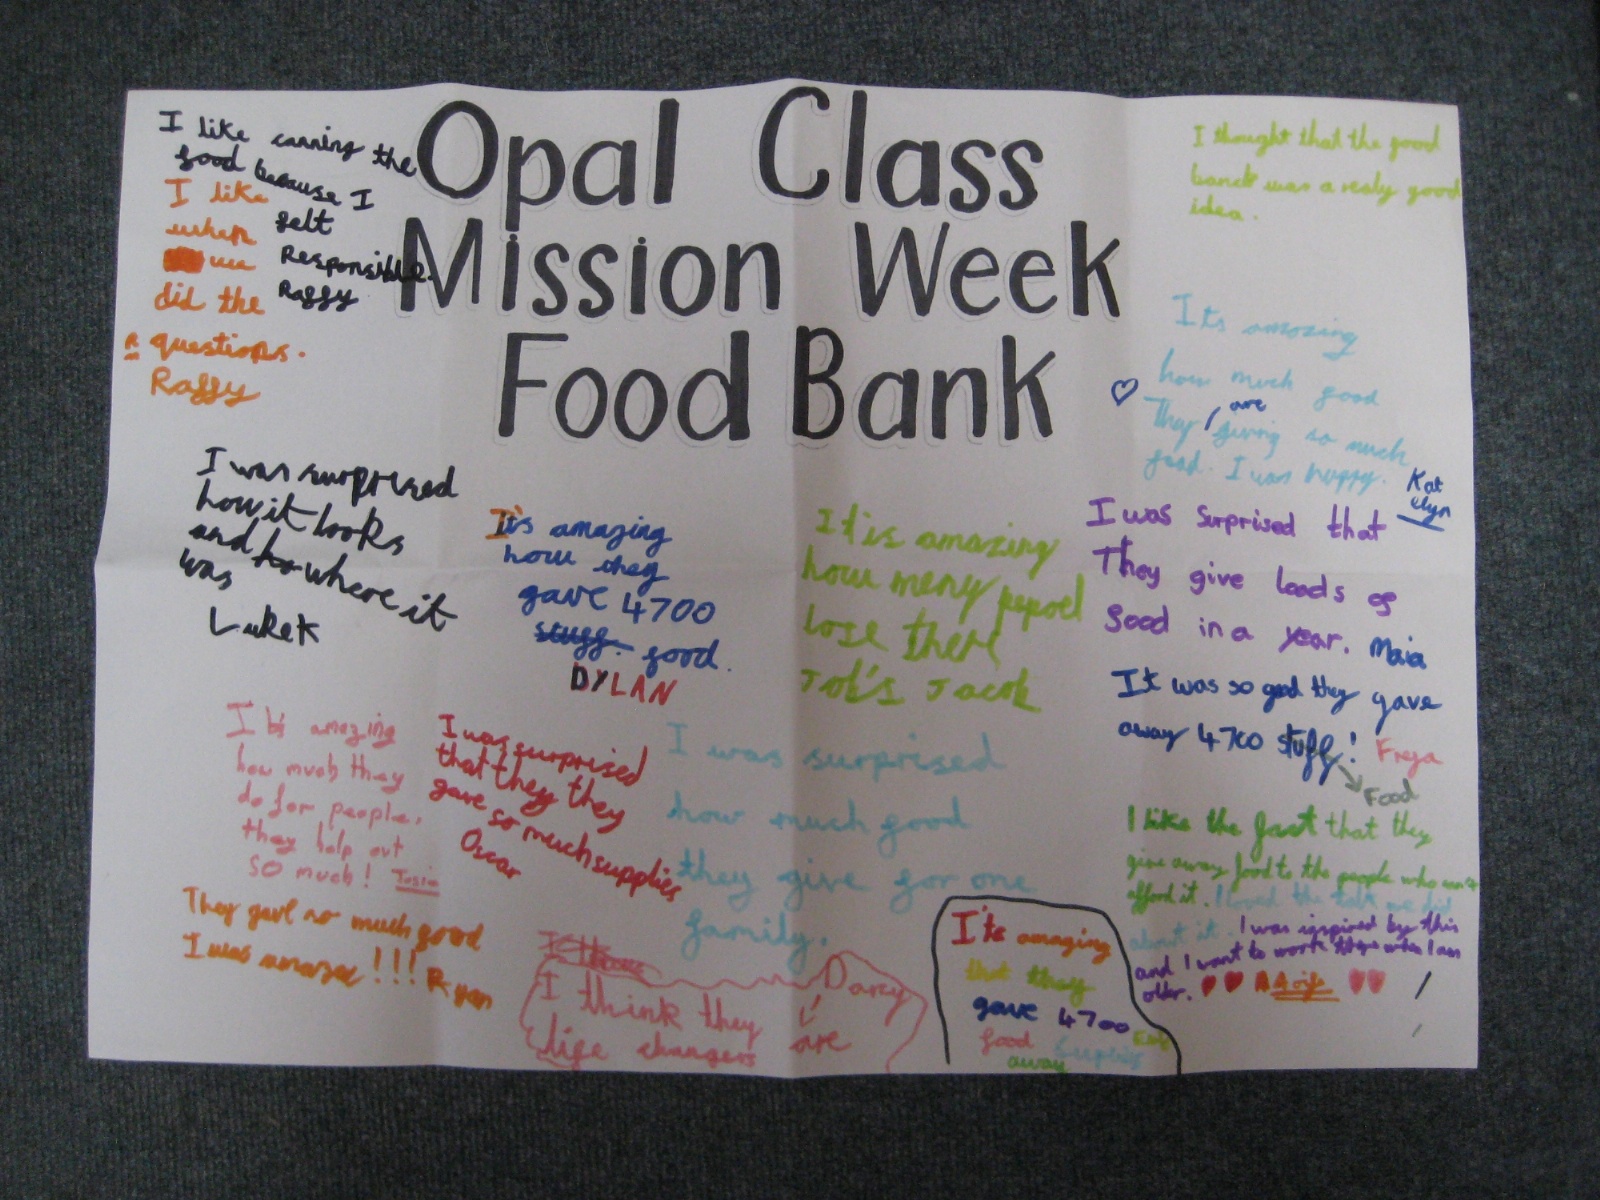 Opal Class
Mission Week
Food Bank
I like carring the
food because I
felt
Responsible.
Raffy
I like
when
we
did the
questions.
Raffy
I was surprised
how it looks
and where it
was
Luke K
It's amazing
how they
gave 4700
stuff. food.
DYLAN
It is amazing
how meny pepoel
lose there
Job's Jacob
I thought that the food
banck was a realy good
idea.
Its amazing
how much food
They are giving so much
food. I was happy.
Kat
elyn
I was surprised that
They give loads of
food in a year. Maia
It was so good they gave
away 4700 stuff! Freya
Food
I like the fact that they
give away food to the people who can't
afford it. I loved the talk we did
about it. I was inspired by this
and I want to work there when I am
older.
It's amazing
how much they
do for people.
they help out
so much!
I was surprised
that they they
gave so much supplies
Oscar
I was surprised
how much food
they give for one
family.
They gave so much food
I was amazed !!! Ryan
I think they are
life changers
Darcy
It's amazing
that they
gave 4700
food
away